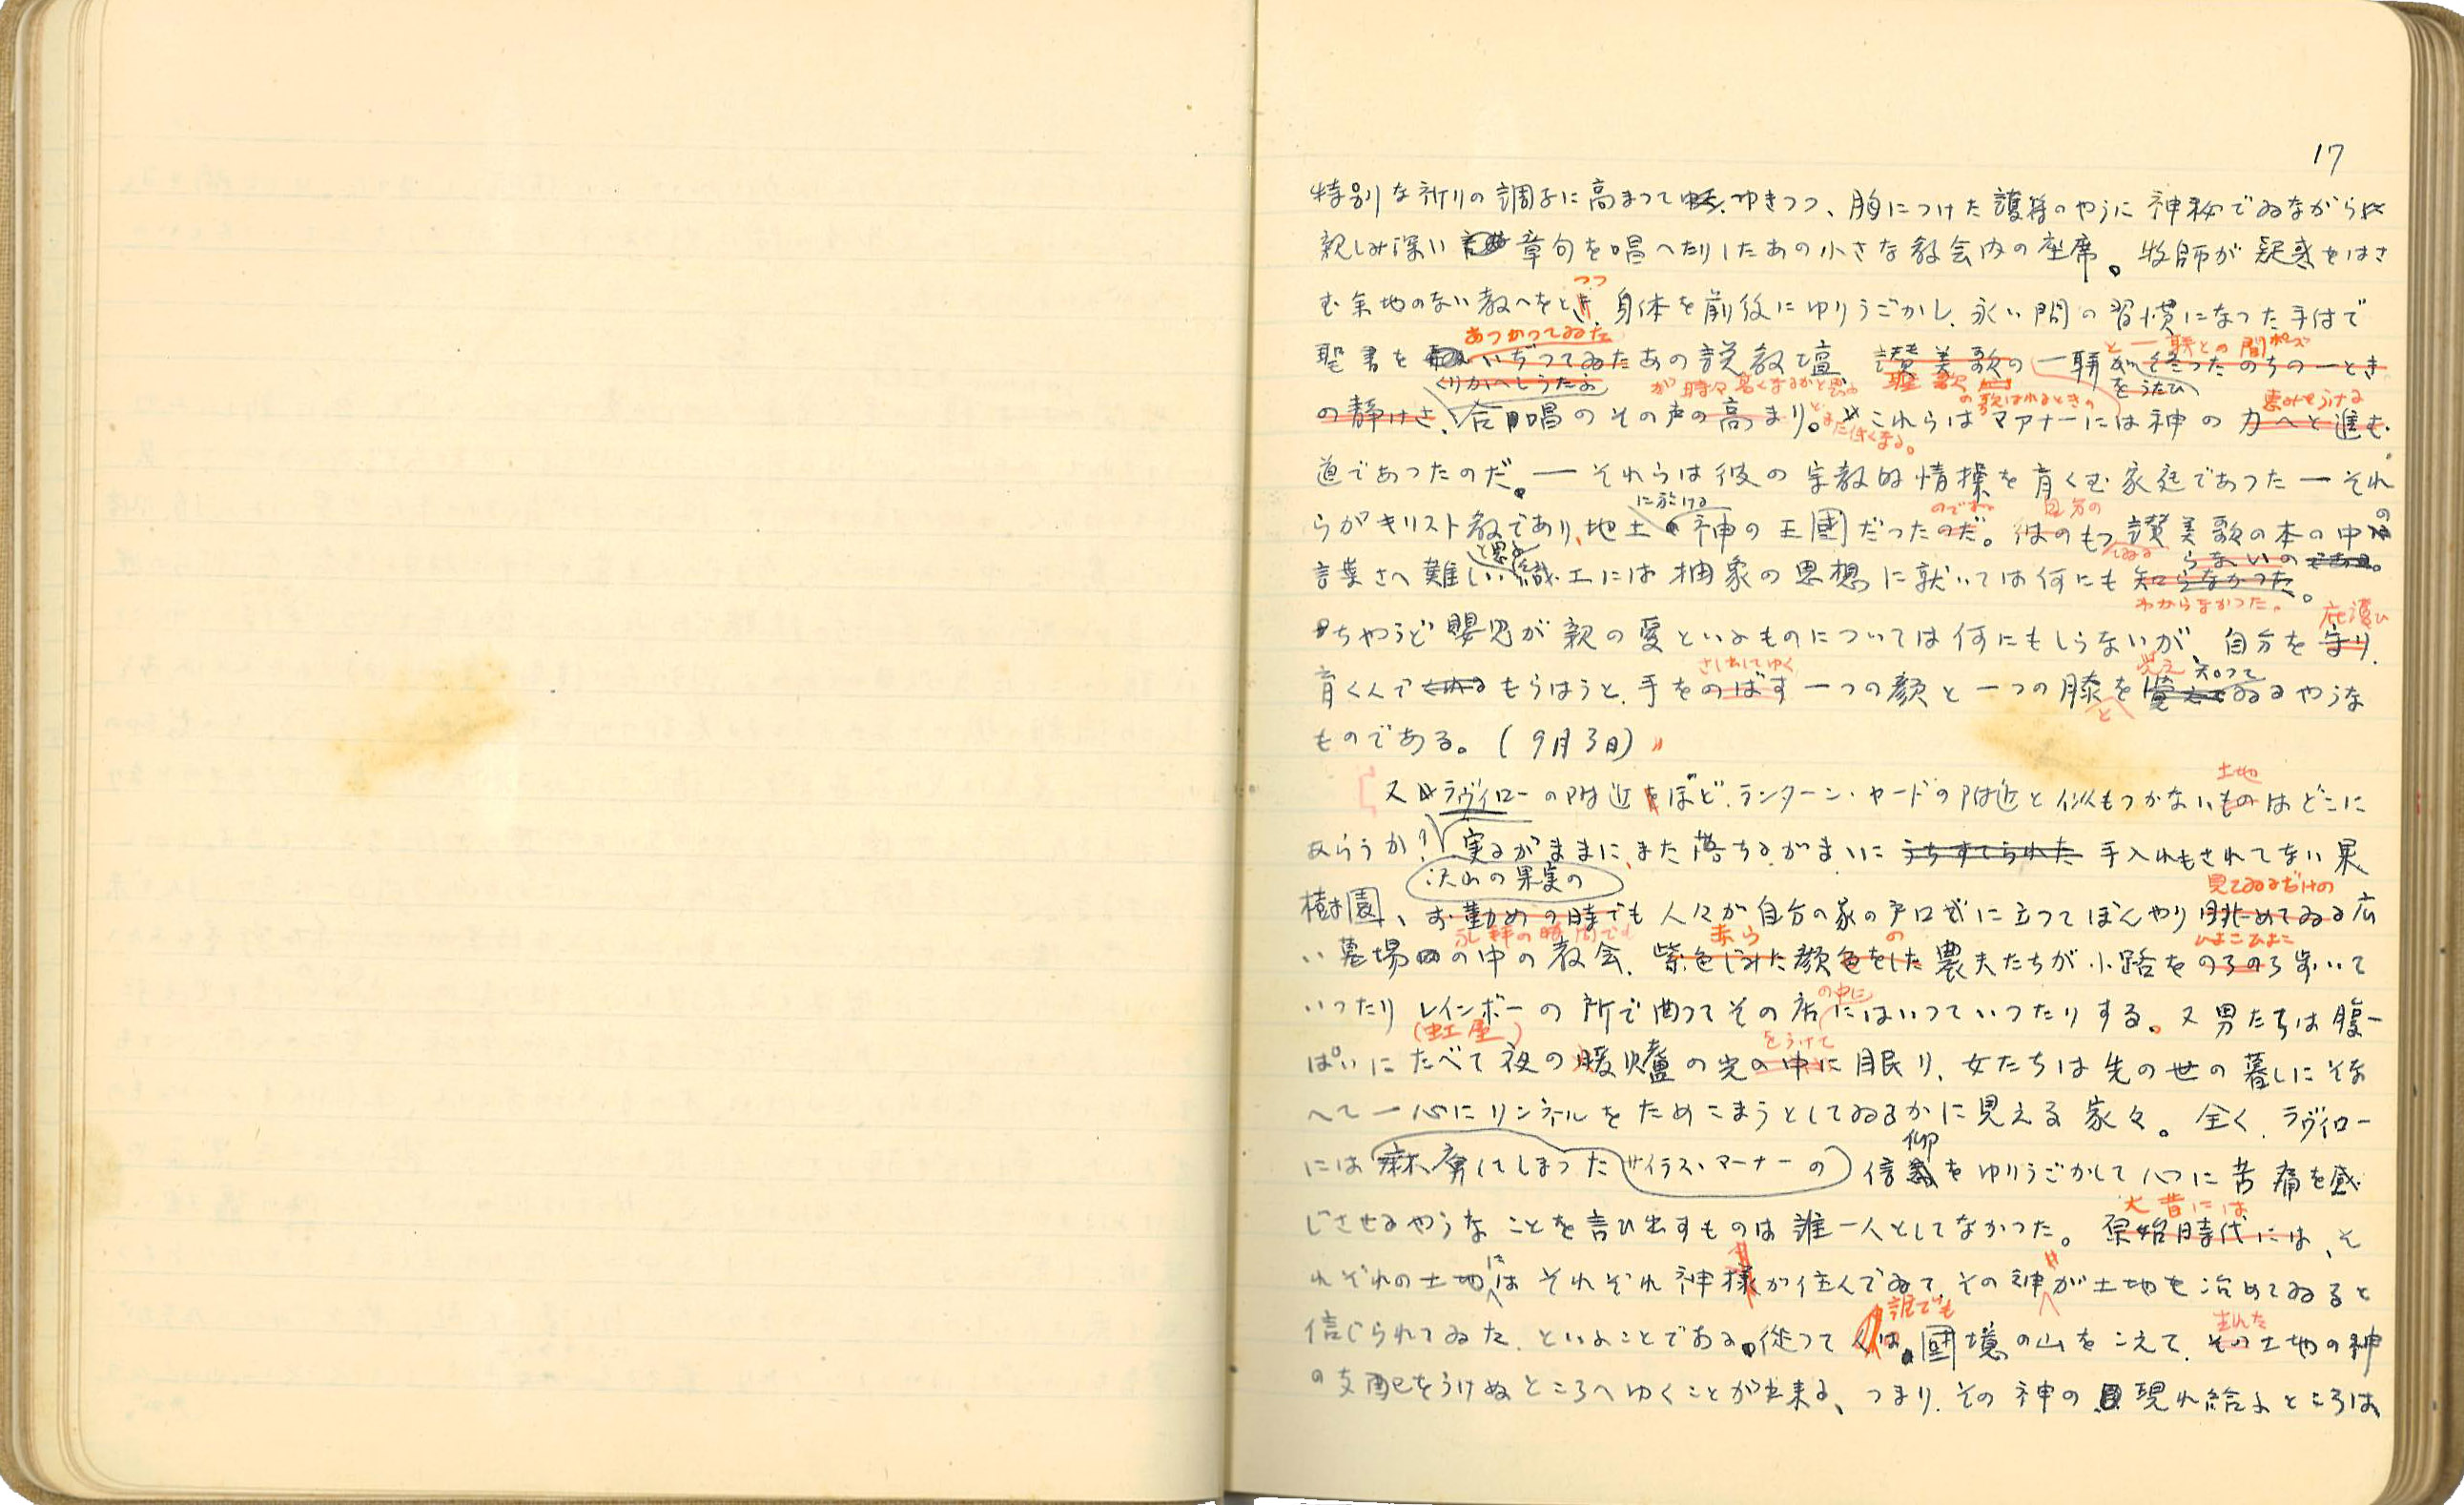 17
特別な祈りの調子に高まつてゆきつつ、胸につけた護符のやうに神秘でゐながら
親しみ深い章句を唱へたりしたあの小さな教会内の座席。牧師が疑惑をはさ
つつ
む余地のない教へをとき、身体を前後にゆりうごかし、永い間の習慣になつた手はで
あつかつてゐた
と一聯との間 ポーズ
聖書をいぢつてゐたあの説教壇、讃美歌の一聯が終つたのちの一とき
くりかへしうたふ
が時々高くまるかと思ふ
聖歌
をうたひ
の歌はれるときの
恵みをうける
の静けさ、合唱のその声の高まり。これらはマアナーには神の力へと進む
また低くまる。
道であつたのだ。— それらは彼の宗教的情操を育くむ家庭であつた — それ
に於ける
のであ
自分の
の
らがキリスト教であり、地上神の王國だつたのだ。彼のもつ讃美歌の本の中
と思ふ
てゐる
らないのである。
言葉さへ難しい織工には抽象の思想に就いては何にも知らなかつた。
わからなかつた。
庇護ひ
ちやうど嬰児が親の愛といふものについては何にもしらないが、自分を守り
さしのしてゆく
覚え
知つて
育くんでもらはうと、手をのばす一つの顔と一つの膝を覚えてゐるやうな
と
ものである。(9月3日)
土地
又ラヴィローの附近ほど、ランターン・ヤードの附近と似もつかないものはどこに
あらうか？実るがままに、また落ちるがまゝにうちすてられた手入れもされてない果
沢山の果実の
見てゐるだけの
樹園、お勤めの時でも人々が自分の家の戸口ぜに立つてぼんやり眺めてゐる広
礼拝の時間でも
赤ら
の
ひよこひよこ
い墓場の中の教会、紫色じみた顔色をした農夫たちが小路をのろのろ歩いて
の中に
いつたりレインボーの所で曲つてその店にはいつていつたりする。又男たちは腹一
(虹屋)
をうけて
ぱいにたべて夜の暖爐の光の中に眠り、女たちは先の世の暮しにそな
へて一心にリンネルをためこまうとしてゐるかに見える家々。全く、ラヴィロー
仰
には麻痺してしまつたサイラス・マーナーの信をゆりうごかして心に苦痛を感
大昔には
じさせるやうなことを言ひ出すものは誰一人としてなかつた。原始時代には、そ
に
れぞれの土地はそれぞれ神様が住んでゐて、その神が土地を治めてゐると
誰でも
生れた
信じられてゐた、といふことである。従つては、國境の山をこえて、その土地の神
の支配をうけぬところへゆくことが出来る、つまり、その神の現れ給ふところは、